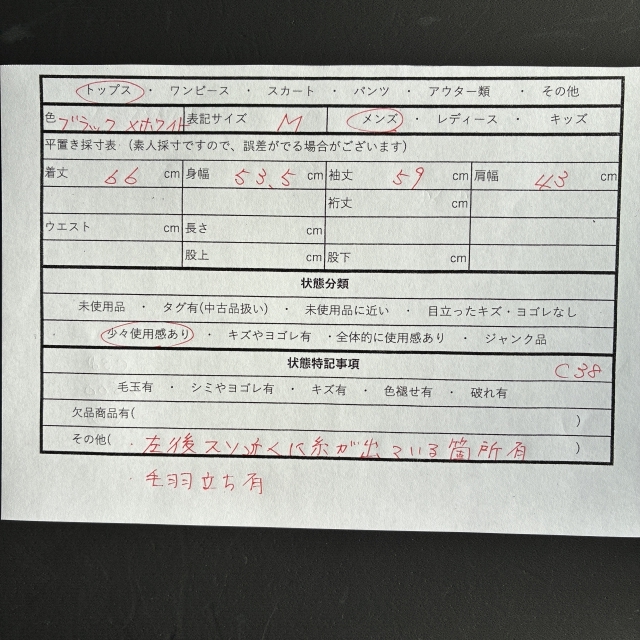 トップス ・ ワンピース ・ スカート ・ パンツ ・ アウター類 ・ その他
色 ブラック×ホワイト 表記サイズ M メンズ ・ レディース ・ キッズ
平置き採寸表 (素人採寸ですので、誤差がでる場合がございます)
着丈 66 cm 身幅 53.5 cm 袖丈 59 cm 肩幅 43 cm
裄丈 cm
ウエスト cm 長さ cm
股上 cm 股下 cm
状態分類
未使用品 ・ タグ有(中古品扱い) ・ 未使用品に近い ・ 目立ったキズ・ヨゴレなし
少々使用感あり ・ キズやヨゴレ有 ・全体的に使用感あり ・ ジャンク品
状態特記事項 C38
毛玉有 ・ シミやヨゴレ有 ・ キズ有 ・ 色褪せ有 ・ 破れ有
欠品商品有( )
その他( ・左後スソ近くに糸が出ている箇所有 )
・毛羽立ち有